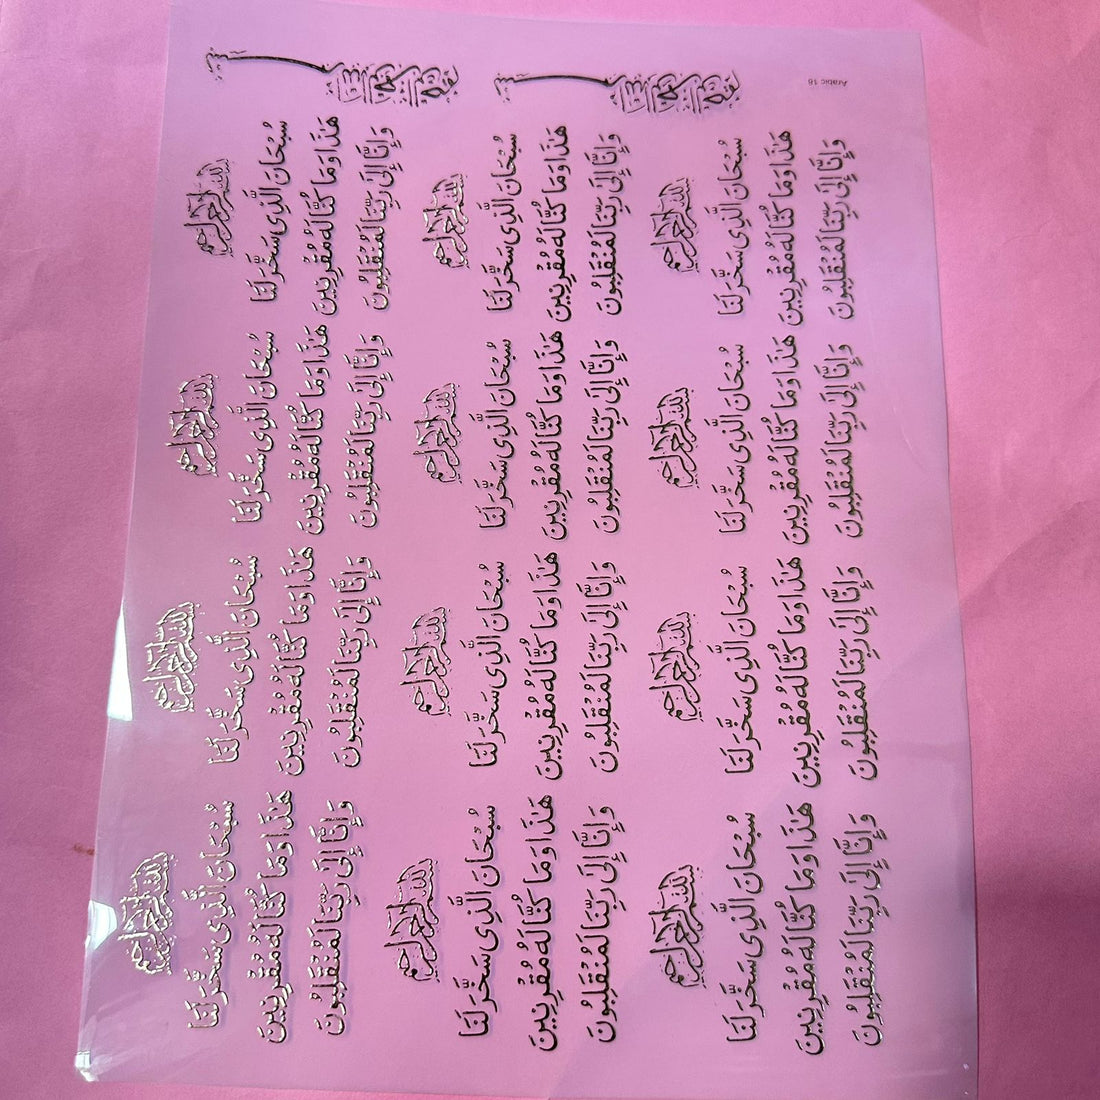 بسم الله الرحمن الرحيم
سُبْحَانَ الَّذِي سَخَّرَ لَنَا
هَذَا وَمَا كُنَّا لَهُ مُقْرِنِينَ
وَإِنَّا إِلَى رَبِّنَا لَمُنْقَلِبُونَ
بسم الله الرحمن الرحيم
سُبْحَانَ الَّذِي سَخَّرَ لَنَا
هَذَا وَمَا كُنَّا لَهُ مُقْرِنِينَ
وَإِنَّا إِلَى رَبِّنَا لَمُنْقَلِبُونَ
بسم الله الرحمن الرحيم
سُبْحَانَ الَّذِي سَخَّرَ لَنَا
هَذَا وَمَا كُنَّا لَهُ مُقْرِنِينَ
وَإِنَّا إِلَى رَبِّنَا لَمُنْقَلِبُونَ
بسم الله الرحمن الرحيم
سُبْحَانَ الَّذِي سَخَّرَ لَنَا
هَذَا وَمَا كُنَّا لَهُ مُقْرِنِينَ
وَإِنَّا إِلَى رَبِّنَا لَمُنْقَلِبُونَ
بسم الله الرحمن الرحيم
سُبْحَانَ الَّذِي سَخَّرَ لَنَا
هَذَا وَمَا كُنَّا لَهُ مُقْرِنِينَ
وَإِنَّا إِلَى رَبِّنَا لَمُنْقَلِبُونَ
بسم الله الرحمن الرحيم
سُبْحَانَ الَّذِي سَخَّرَ لَنَا
هَذَا وَمَا كُنَّا لَهُ مُقْرِنِينَ
وَإِنَّا إِلَى رَبِّنَا لَمُنْقَلِبُونَ
بسم الله الرحمن الرحيم
سُبْحَانَ الَّذِي سَخَّرَ لَنَا
هَذَا وَمَا كُنَّا لَهُ مُقْرِنِينَ
وَإِنَّا إِلَى رَبِّنَا لَمُنْقَلِبُونَ
بسم الله الرحمن الرحيم
سُبْحَانَ الَّذِي سَخَّرَ لَنَا
هَذَا وَمَا كُنَّا لَهُ مُقْرِنِينَ
وَإِنَّا إِلَى رَبِّنَا لَمُنْقَلِبُونَ
بسم الله الرحمن الرحيم
سُبْحَانَ الَّذِي سَخَّرَ لَنَا
هَذَا وَمَا كُنَّا لَهُ مُقْرِنِينَ
وَإِنَّا إِلَى رَبِّنَا لَمُنْقَلِبُونَ
بسم الله الرحمن الرحيم
سُبْحَانَ الَّذِي سَخَّرَ لَنَا
هَذَا وَمَا كُنَّا لَهُ مُقْرِنِينَ
وَإِنَّا إِلَى رَبِّنَا لَمُنْقَلِبُونَ
بسم الله الرحمن الرحيم
سُبْحَانَ الَّذِي سَخَّرَ لَنَا
هَذَا وَمَا كُنَّا لَهُ مُقْرِنِينَ
وَإِنَّا إِلَى رَبِّنَا لَمُنْقَلِبُونَ
بسم الله الرحمن الرحيم
سُبْحَانَ الَّذِي سَخَّرَ لَنَا
هَذَا وَمَا كُنَّا لَهُ مُقْرِنِينَ
وَإِنَّا إِلَى رَبِّنَا لَمُنْقَلِبُونَ
Arabic 18